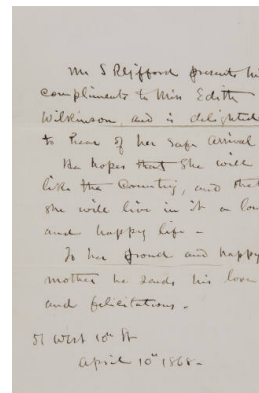 Mr S R Gifford presents hi
compliments to Miss Edith
Wilkinson, and is delighted
to hear of her safe arrival
He hopes that she will
like the Country, and that
she will live in it a lon
and happy life -
To her proud and happy
mother he sends his love
and felicitations.
51 West 10th St
April 10th 1868-